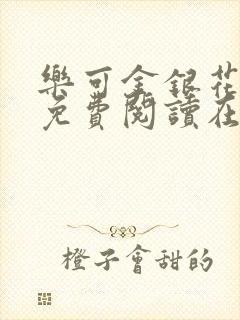 樂可金銀花
免費閱讀在
橙子會甜的